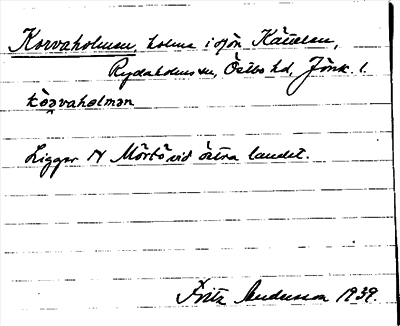 Korvaholmen, holme i sjön Känelen,
Rydaholms sn, Östbo hd, Jönk. l.
Ligger N Mörtö vid östra landet.
Fritz Andersson 1939.